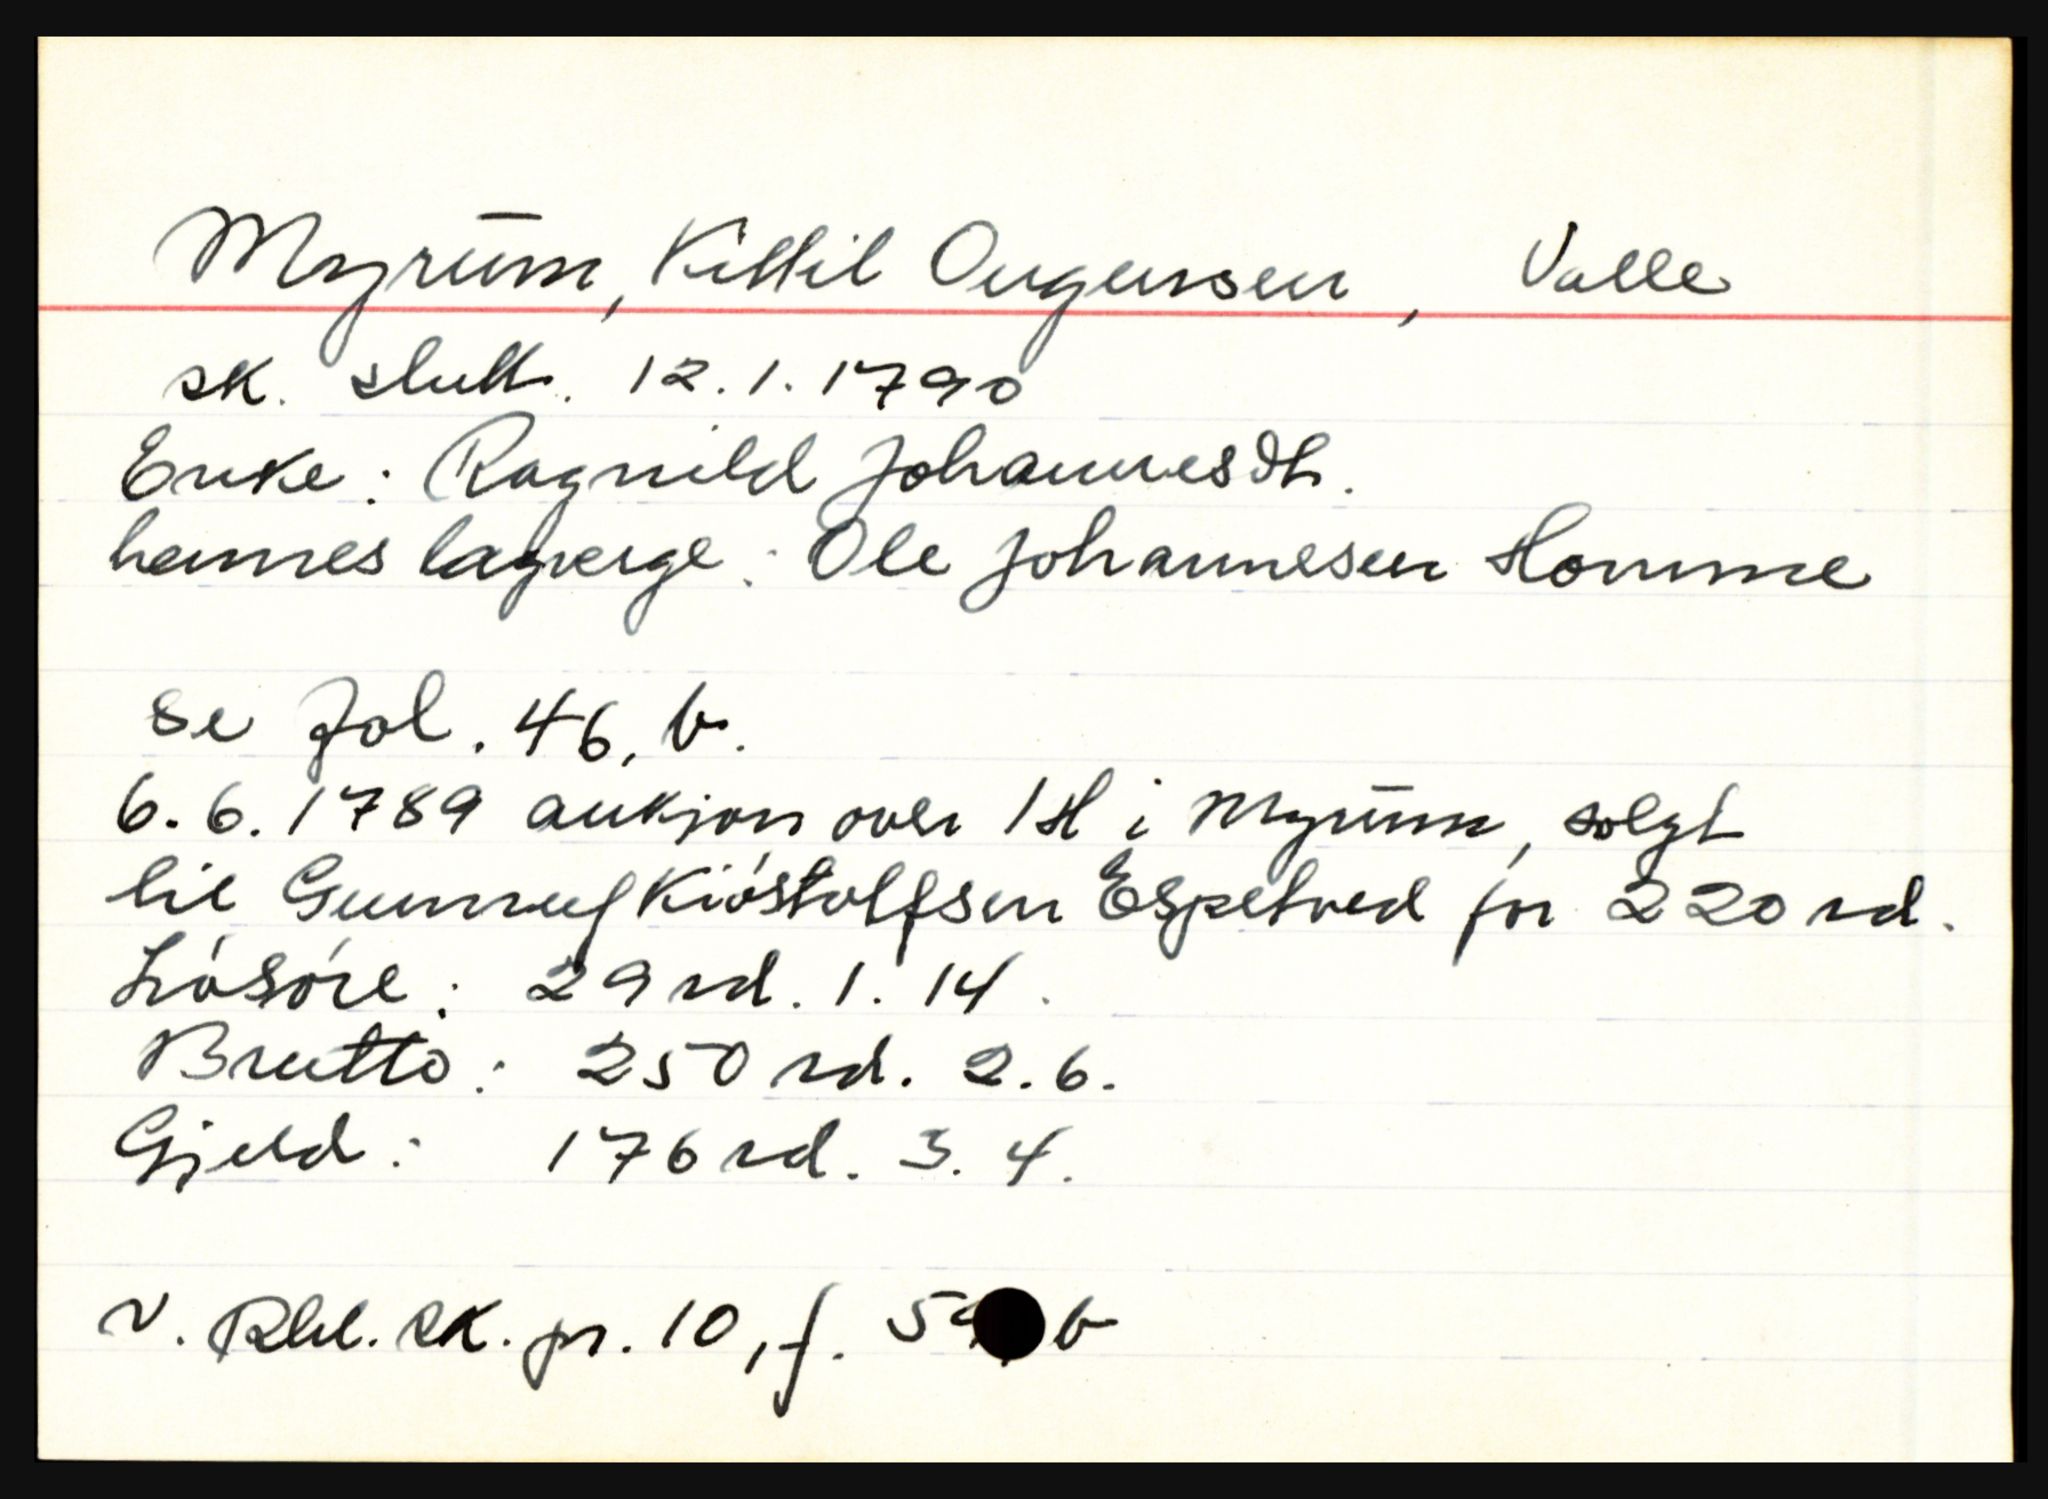 Myrūm, Kittil Ougunsen, Valle
sk. slutt. 12.1.1790
Enke: Ragnild Johannesdt.
hennes lagverge: Ole Johannesen Homme
se fol. 46, b.
6.6.1789 auksjon over 1 H i Myrūm, solgt
til Gunnuf Kióstolfsen Espetved for 220 rd.
Lósóre: 29 rd. 1. 14.
Brutto: 250 rd. 2. 6.
Gjeld: 176 rd. 3. 4.
V. Rbl. sk. pr. 10, f. b